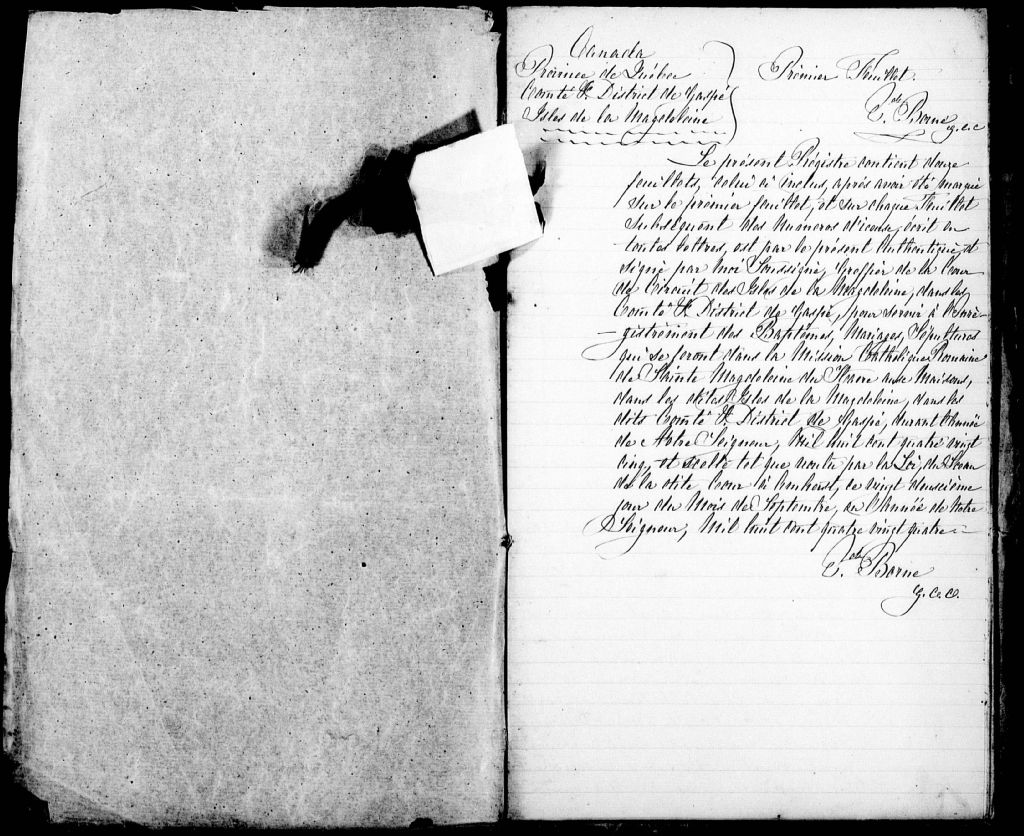 Canada
Province de Québec
Comté & District de Gaspé
Isles de la Magdeleine
Prémier Feuillet.
Borne g.c.c
Le présent Régistre contient douze
feuillets, celui ci inclus, après avoir été marqué
sur le prémier feuillet, et sur chaque Feuillet
Subséquent des Numeros d'icense, écrit en
toutes lettres, est par le présent Authentiqué, et
signé par moi Soussigné, Greffier de la Cour
de Circuit des Isles de la Magdeleine, dans les
Comté & District de Gaspé, pour servir à l'Enré-
-gistrément des Baptêmes, Mariages, Sépultures
qui se feront dans la Mission Catholique Romaine
de Sainte Magdeleine du Havre aux Maisons,
dans les dites Isles de la Magdeleine, dans les
dits Comté & District de Gaspé, durant l'Année
de Notre Seigneur, Mil huit cent quatre vingt
cinq, et scellé tel que voulu par la Loi, du Sceau
de la dite Cour à Amherst, ce vingt deuxième
jour du Mois de Septembre, en l'Année de Notre
Seigneur, Mil huit cent quatre vingt quatre
Borne
g.c.c.